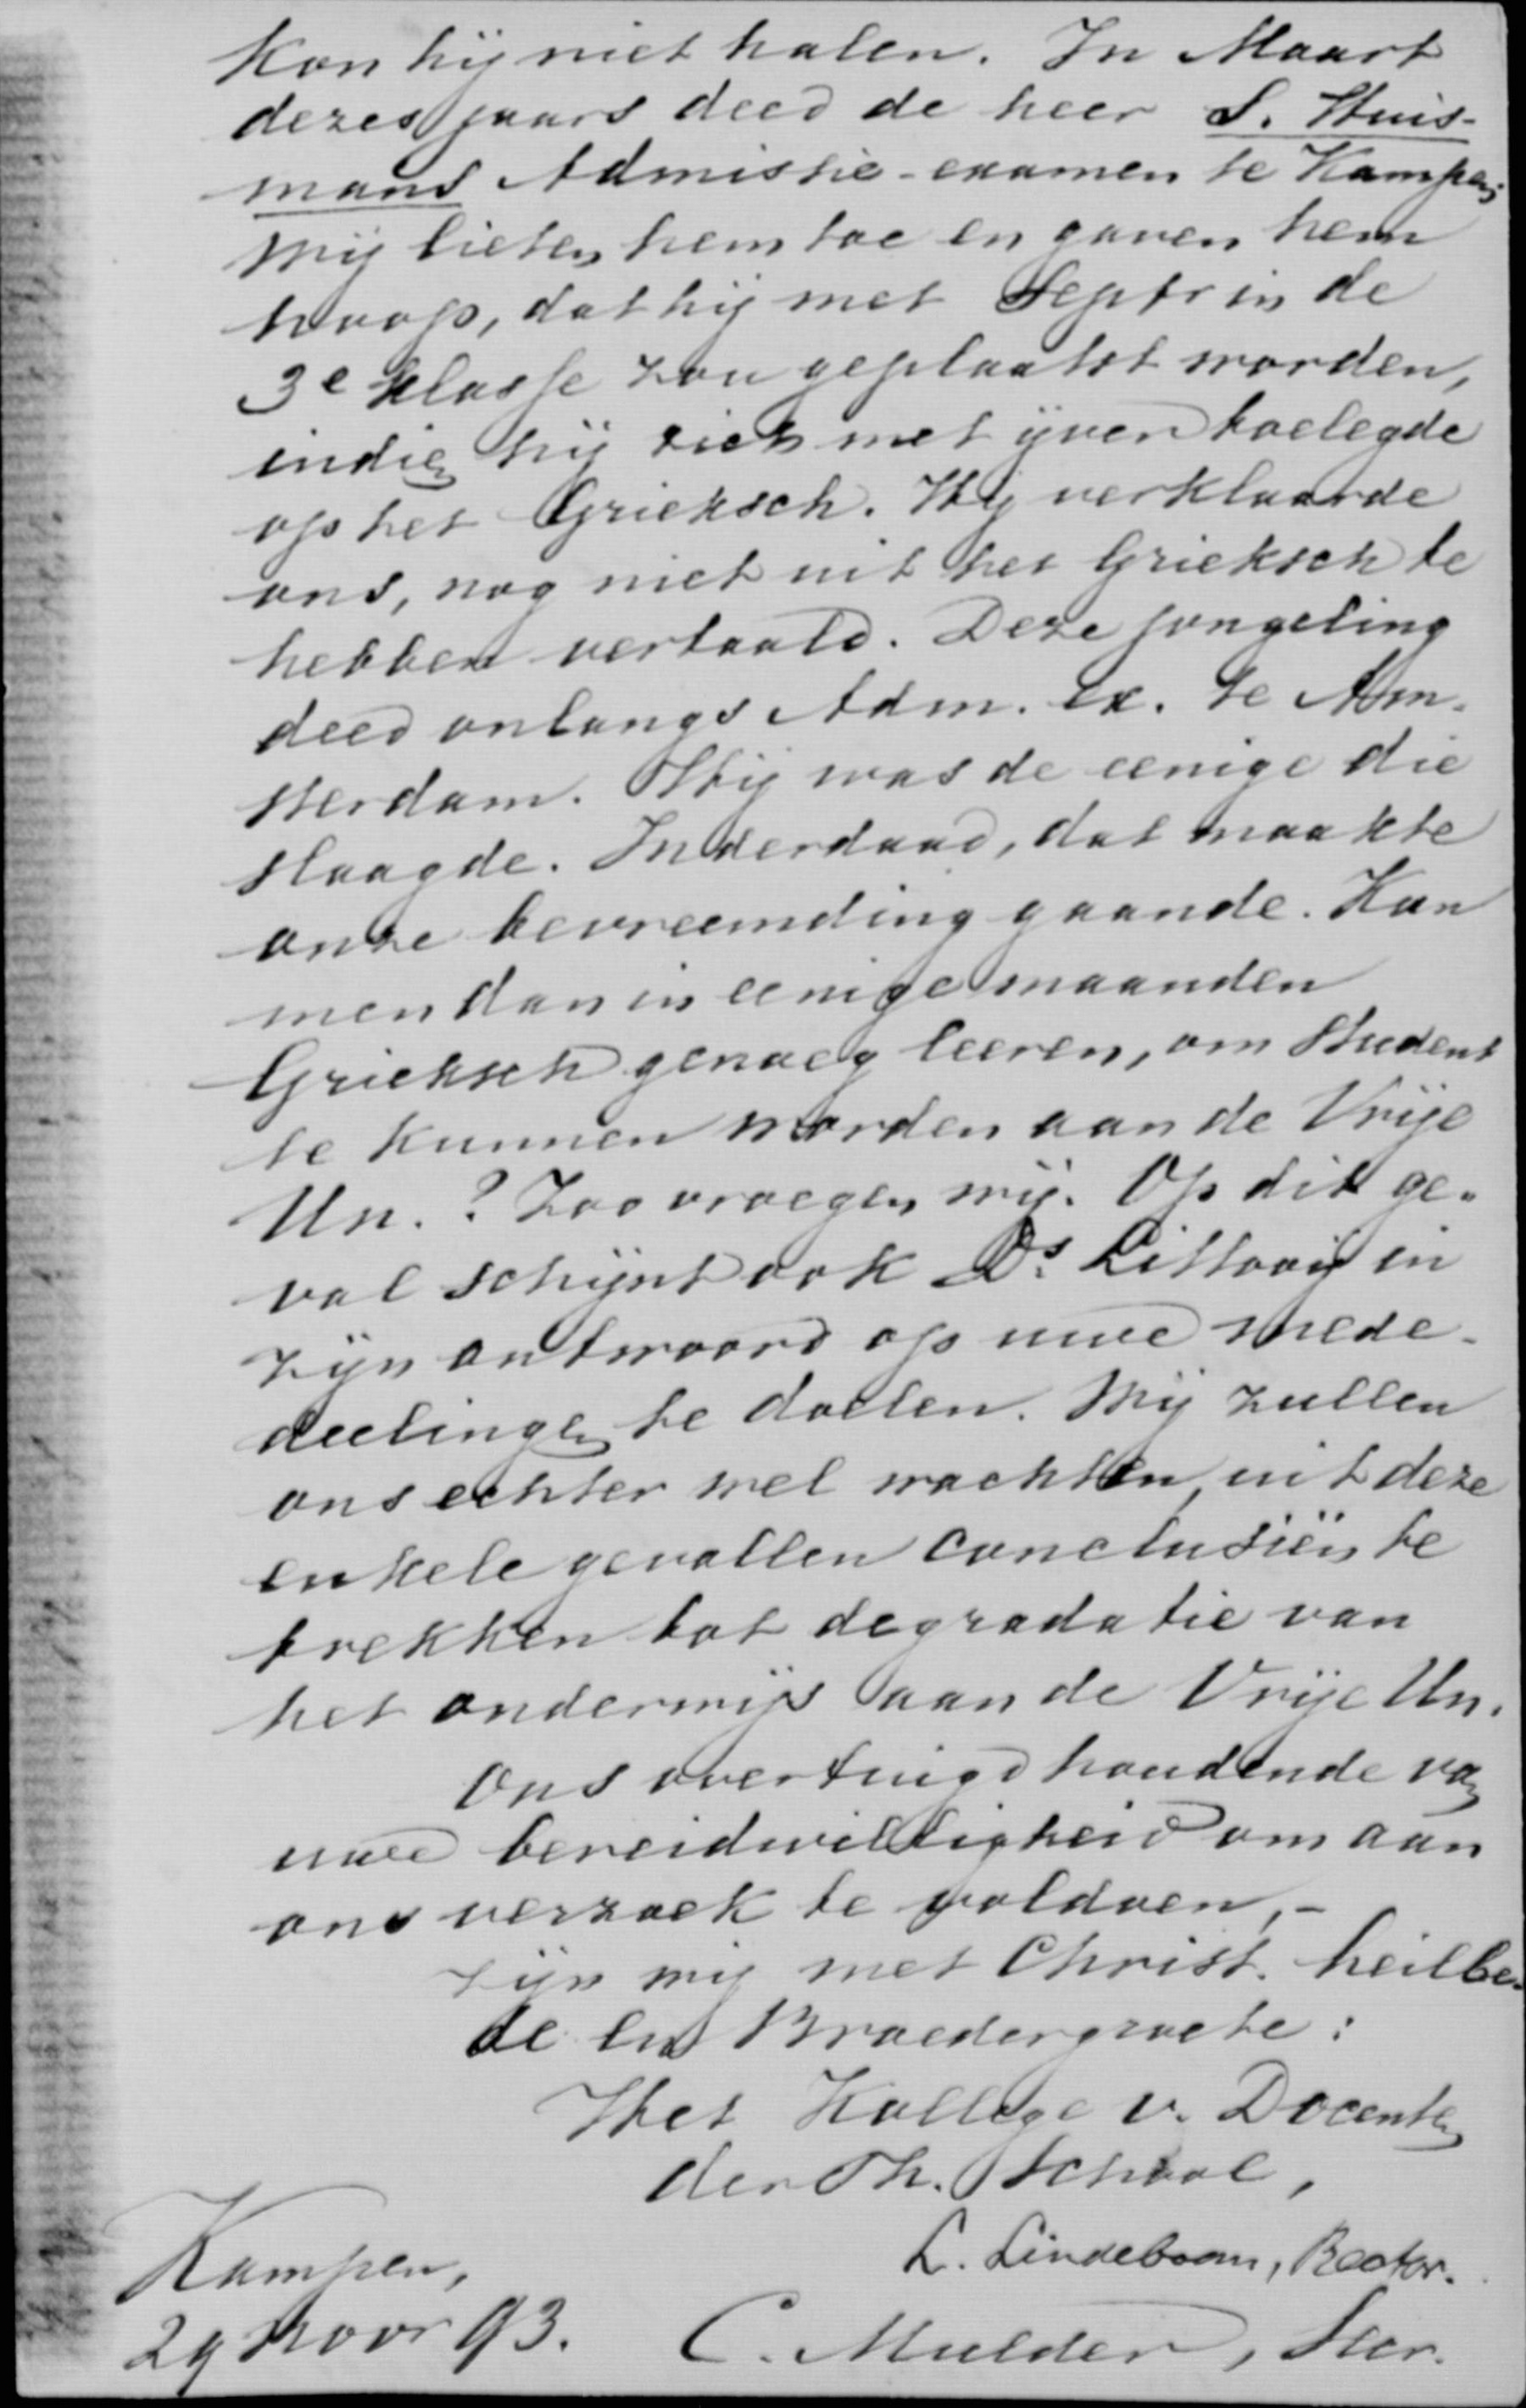 Kon hij niet halen. In Maart
dezes jaars deed de heer S. Huis-
mans Admissie-examen te Kampen;
wij lieten hem toe en gaven hem
hoop, dat hij met Septr in de
3e klasse zou geplaatst worden,
indien hij zich met ijver toelegde
op het Grieksch. Hij verklaarde
ons, nog niet uit het Grieksch te
hebben vertaald. Deze jongeling
deed onlangs Adm. ex. te Am-
sterdam. Hij was de eenige die
slaagde. Inderdaad, dat maakte
onze bevreemding gaande. Kan
men dan in eenige maanden
Grieksch genoeg leeren, om Student
te kunnen worden aan de Vrije
Un.? Zoo vroegen wij. Op dit ge-
val schijnt ook Ds. Littooij in
zijn antwoord op uwe mede-
deelingen te doelen. Wij zullen
ons echter wel wachten, uit deze
enkele gevallen conclusiën te
trekken tot degradatie van
het onderwijs aan de Vrije Un.
Ons overtuigd houdende van
uwe bereidwilligheid om aan
ons verzoek te voldoen,-
zijn wij met Christ. heilbe-
de en Broedergroete:
Het Kollege v. Docenten
der Th. School,
L. Lindeboom, Rector.
Kampen,
29 Novr 93.
C. Mulder, Scr.